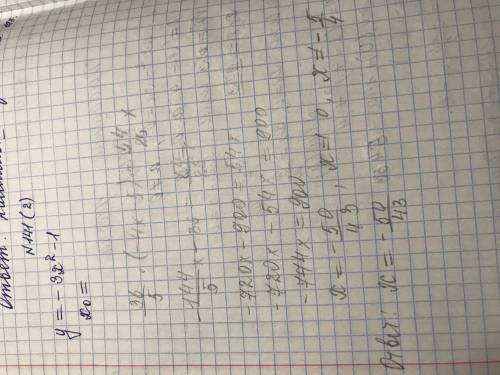 Ответ:
N141(2)
y = -3x² - 1
x₀ =
36/5 · (-4x - 5) = 54 x
-144/5 x - 36 =
-720x - 900 = 54x
-720x - 54x = 900
-774x = 900
x = -50/43, x ≠ 0, x ≠ -5/4
Ответ: x = -50/43